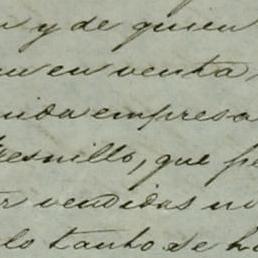 y de quien
en venta,
empresa
Fresnillo, que
vendidas
lo tanto se